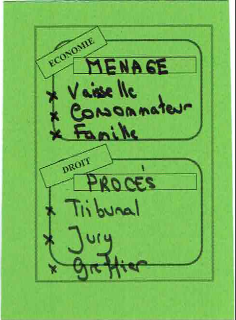 ECONOMIE
MENAGE
x Vaisselle
x Consommateur
x Famille
DROIT
PROCÉS
x Tribunal
x Jury
x Greffier